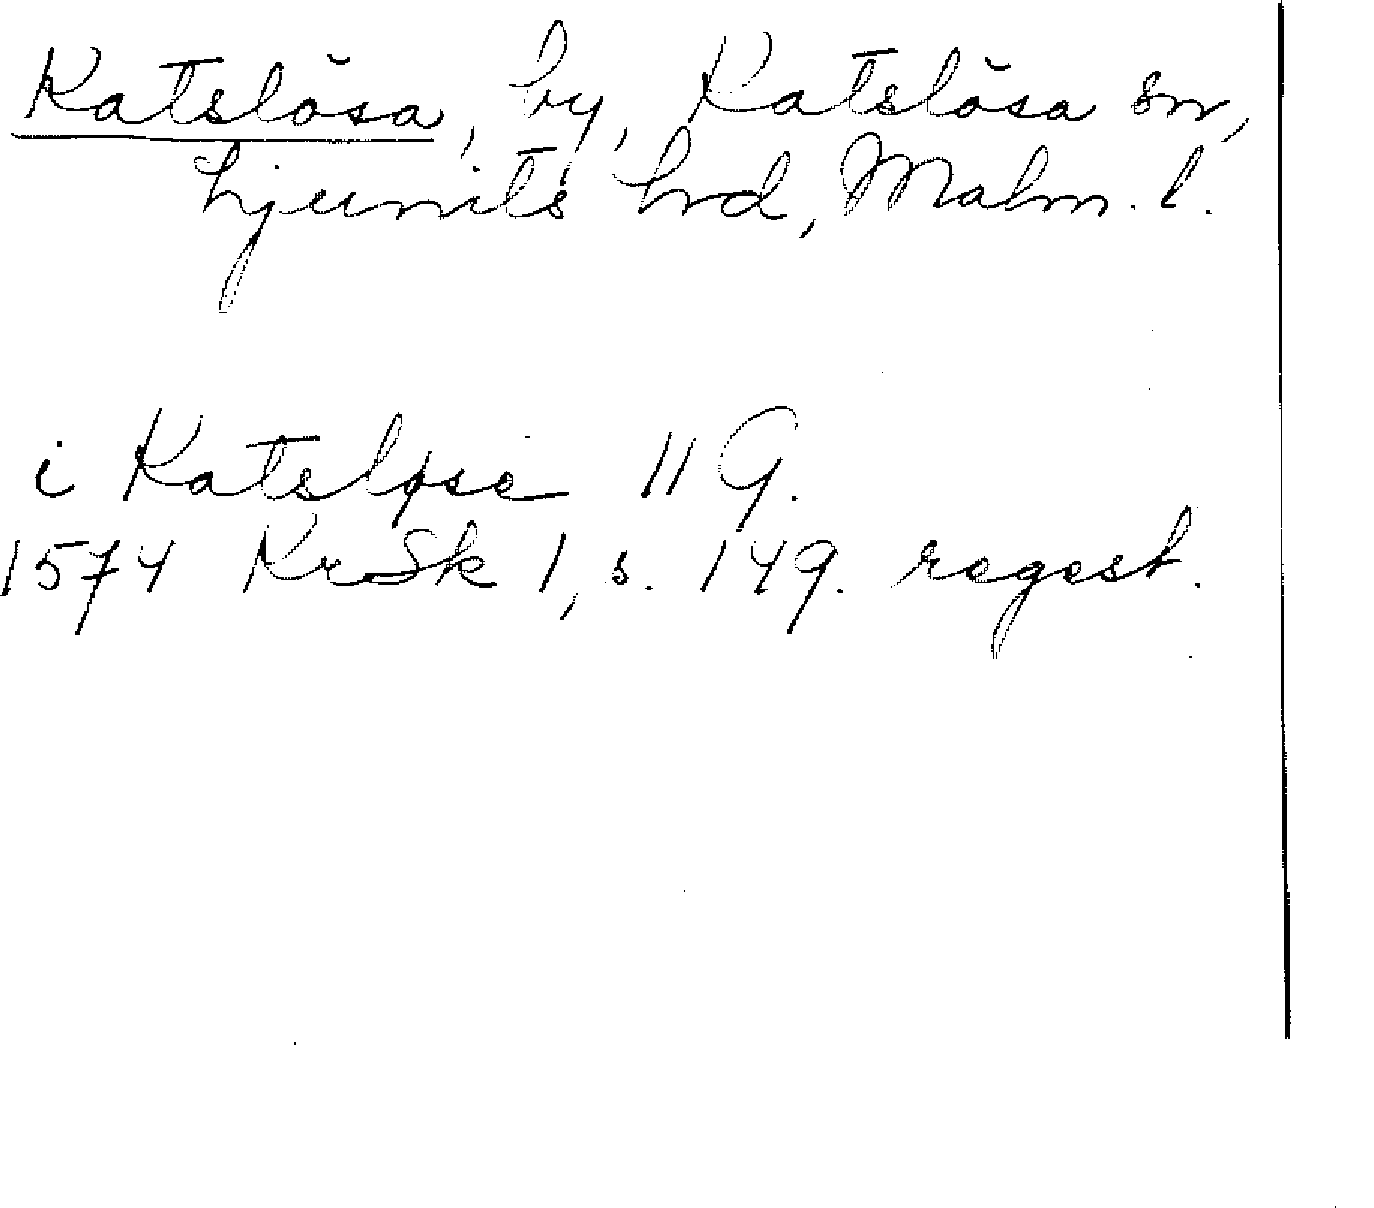 Katslösa, by, Katslösa sn,
Ljunits hrd, Malm. l.
i Katsløse 11 G.
1574 KrSk 1, s. 149. regest.